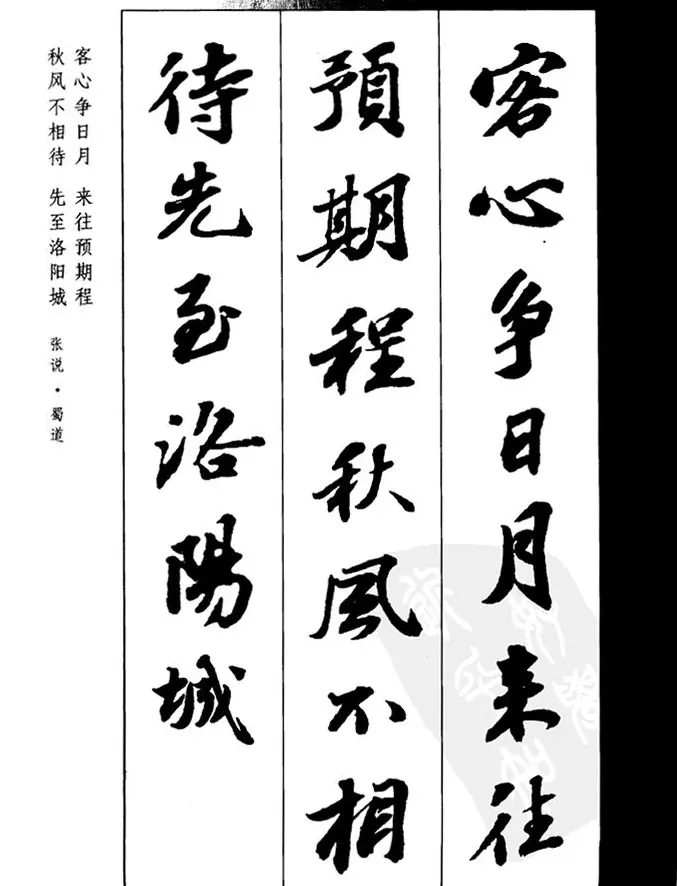 客心争日月来往
預期程秋風不相
待先至洛陽城
客心争日月 来往预期程
秋风不相待 先至洛阳城
张说·蜀道